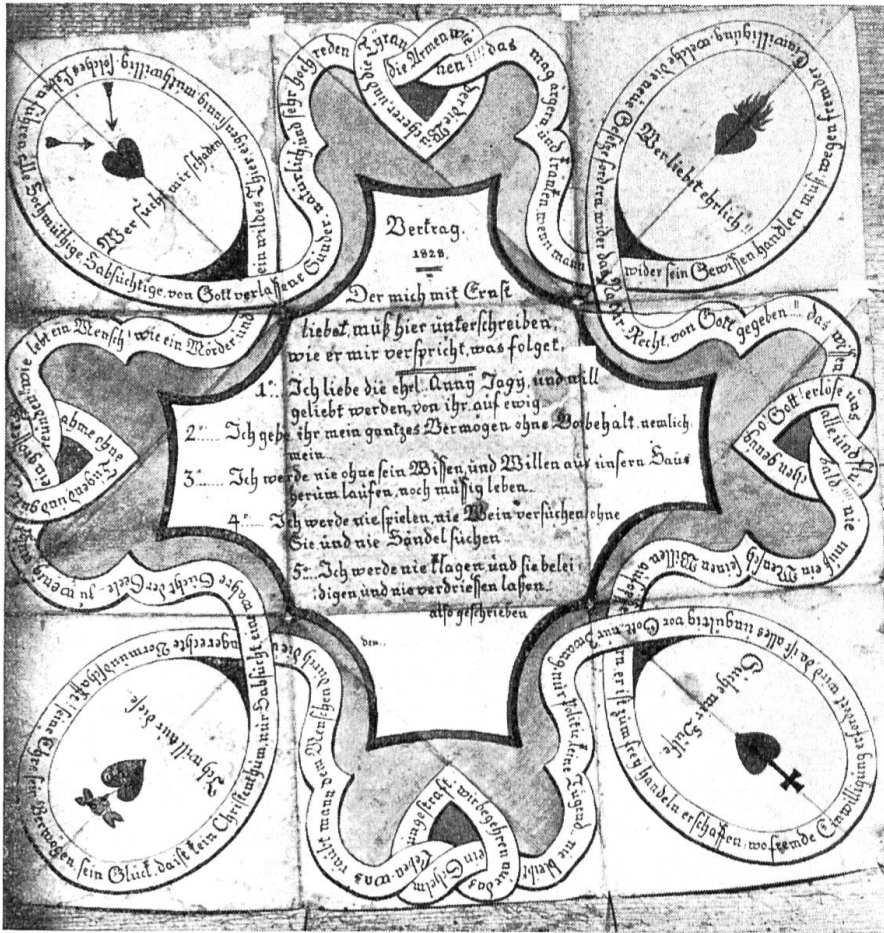 Vertrag.
1828.
Der mich mit Ernst
liebet, muß hier unterschreiben,
wie er mir verspricht, was folget,
1° Ich liebe die ehrl: Anny Jagy, und will
geliebt werden, von ihr, auf ewig
2° Ich gebe ihr mein gantzes Vermogen ohne Vorbehalt. nemlich
mein
3° Ich werde nie ohne sein Wissen, und Willen aus unsern Haus
herum laufen, noch müssig leben
4° Ich werde nie spielen, nie Wein versuchen, ohne
Sie, und nie Händel suchen
5° Ich werde nie klagen, und sie belei
digen und nie verdriessen laßen
also geschrieben
den
Wer sucht mir schaden
Wer liebet ehrlich!!
Ich will nur diese
Suche nur Hülfe
solches Leben führen alle Hochmüthige, Habsüchtige, von Gott verlaßene Sünder. natürlich und sehr hoch reden
die Tyran
die Armen wie
das mag ärgern und kranken wenn mann
wider sein Gewissen handlen muß, wegen fremder Einwilligung, welche die neue Gesetze fordern wider das Natur-Recht, von Gott gegeben!! das wissen
O! Gott! erlöse uns
bald
nie muß ein Mensch seinen Willen
er ist zum frey handeln erschaffen, wo fremde Einwilligung erfordert wird, da ist alles ungültig vor Gott, nur Zwang, nur Politic, keine Tugend. nie bleibt
ein Geheim
ungestraft, wir begehren nur das
Leben, was raubt mann dem Menschen durch die
ungerechte Vormundschaft: seine Ehre, sein Vermögen, sein Glück, da ist kein Christenthum, nur Habsucht, eine wahre Gicht der Seele
zu wenig
ohne
Tugend
wie lebt ein Mensch, wie ein Mörder und
ein wildes Thier, eigensinnig, muthwillig,